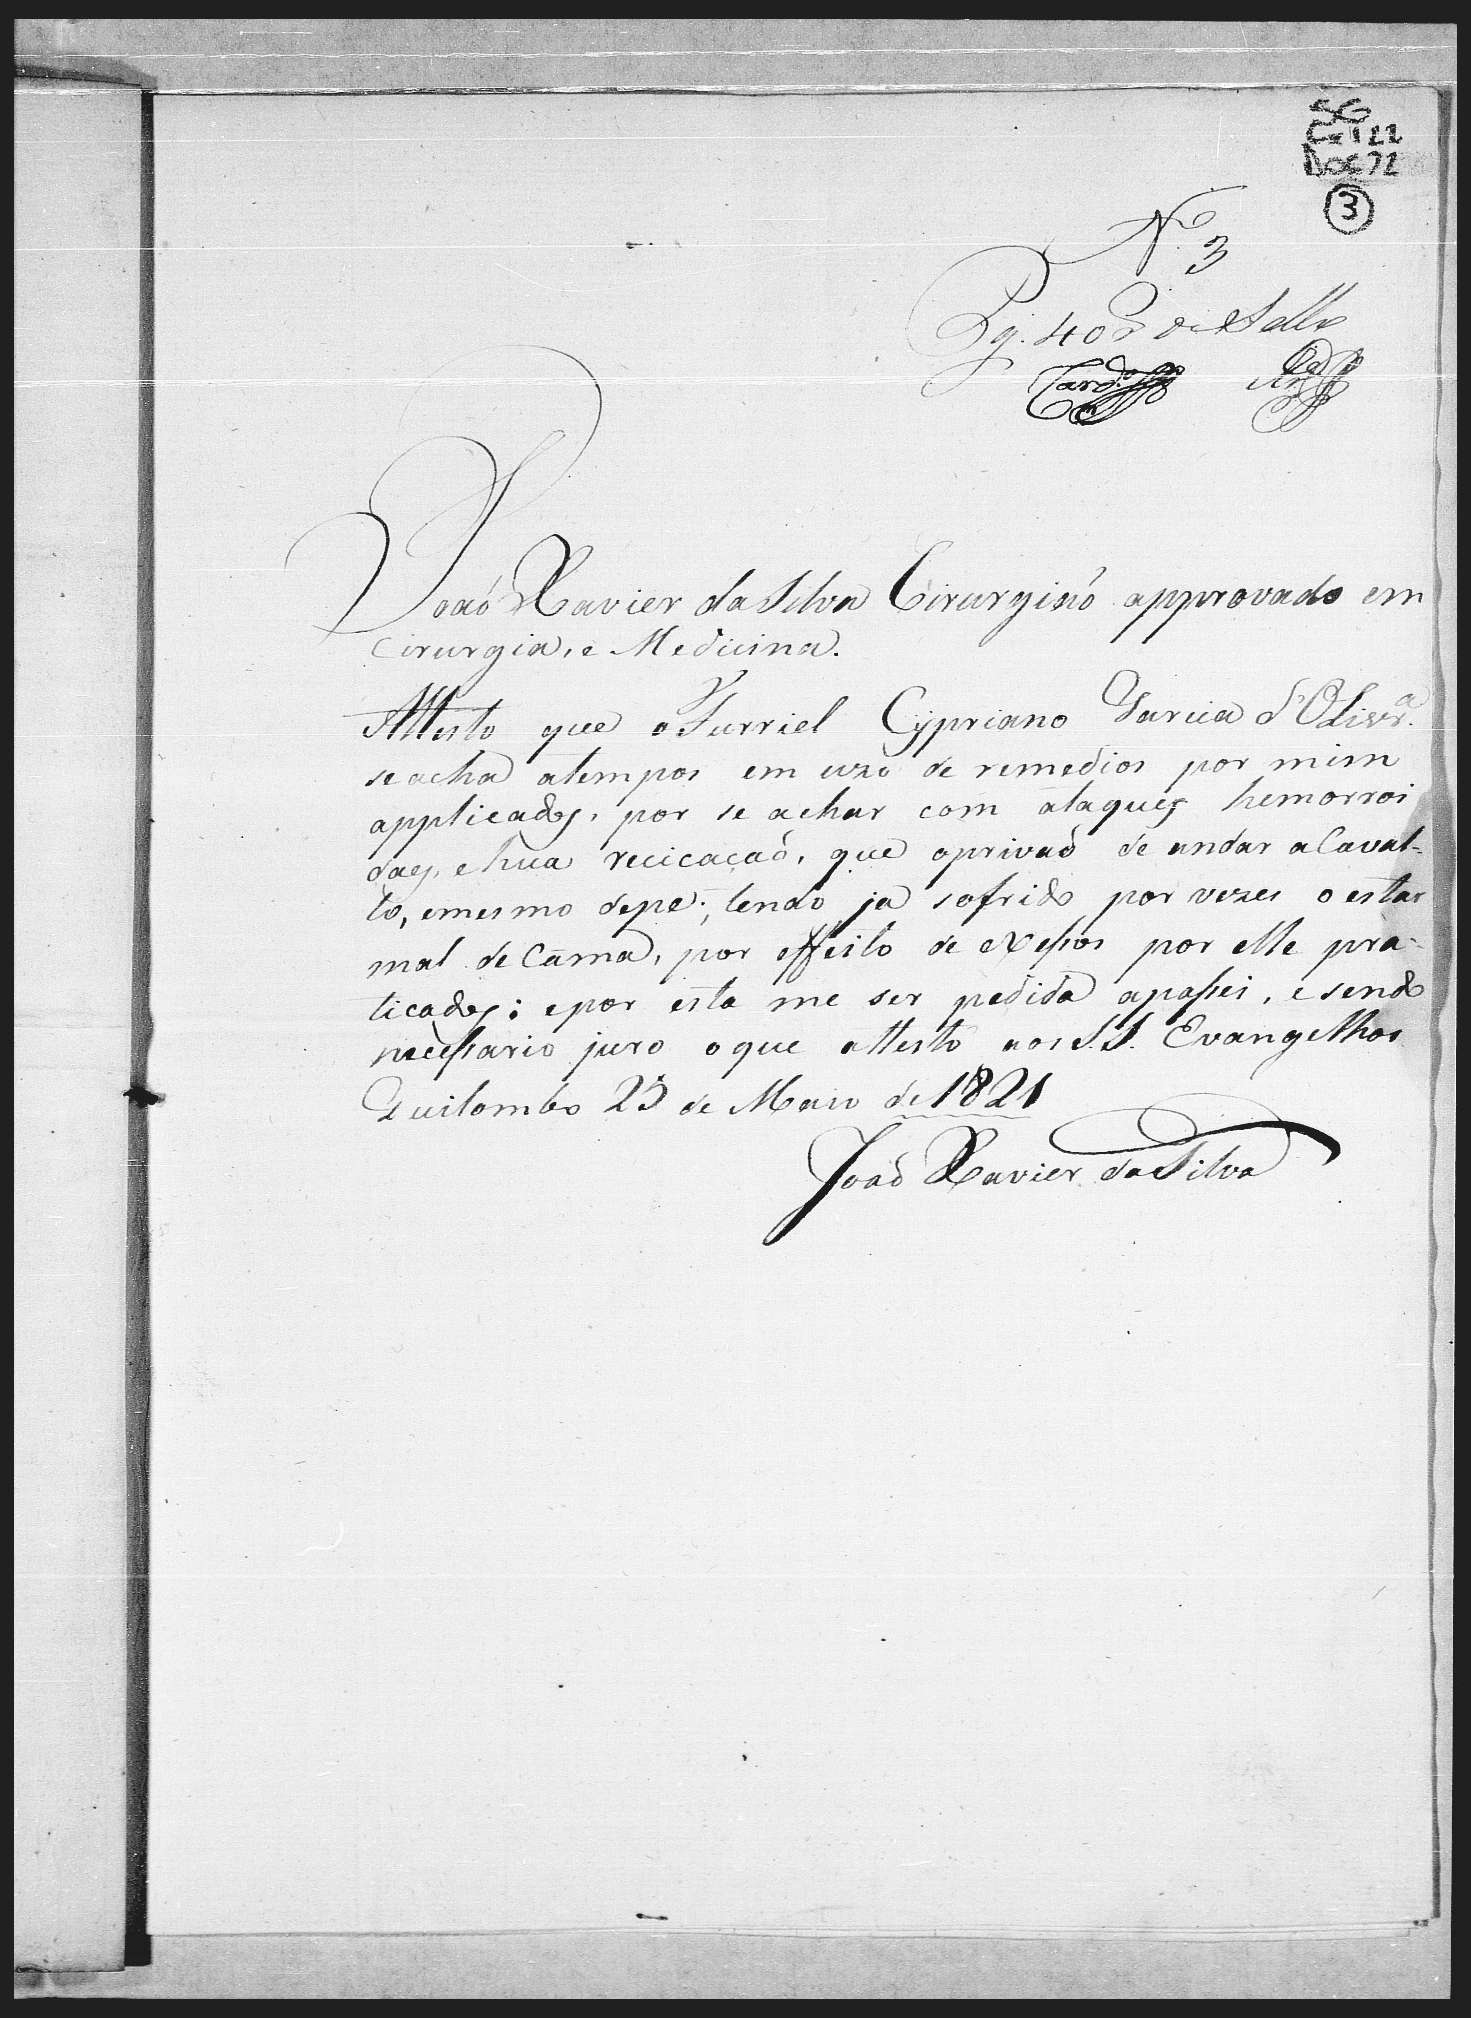 SG
Cx 122
Doc 72
3
Nº 3
Pg. 40 r de Sello
Card.º
Joaõ Xavier da Silva Cirurgiaõ approvado em
Cirurgia, e Medicina.
Attesto que o Furriel Cypriano Garcia d'Olivr.ª
se acha atempos em uzo de remedios por mim
applicados, por se achar com ataques hemorroi
daes, e hua recicaçaõ, que o privaõ de andar a Caval-
lo, e mesmo de pe; tendo ja sofrido por vezes o estar
mal de Cama, por effeito de exessos por elle pra-
ticados; e por esta me ser pedida a passei, e sendo
necessario juro o que attesto aos S.S. Evangelhos
Quilombo 25 de Maio de 1821
Joaõ Xavier da Silva